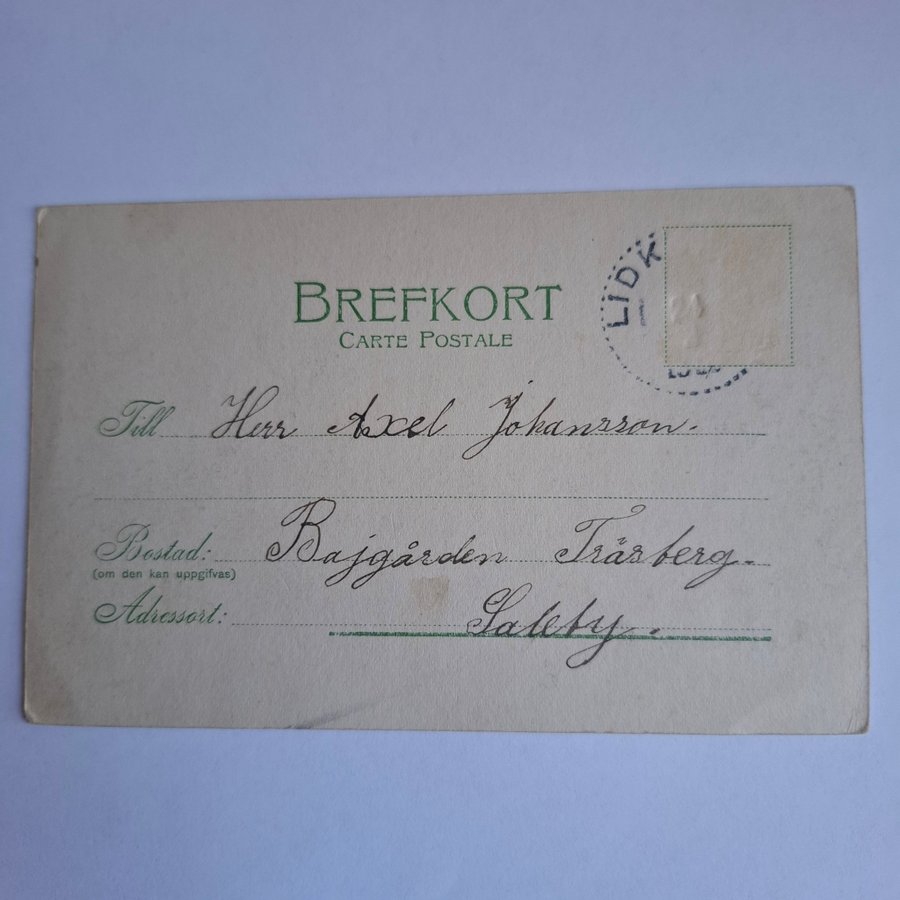 BREFKORT
CARTE POSTALE
LIDK
Till Herr Axel Johansson.
Bostad: Bajgården Trärberg.
(om den kan uppgifvas)
Adressort: Saleby.